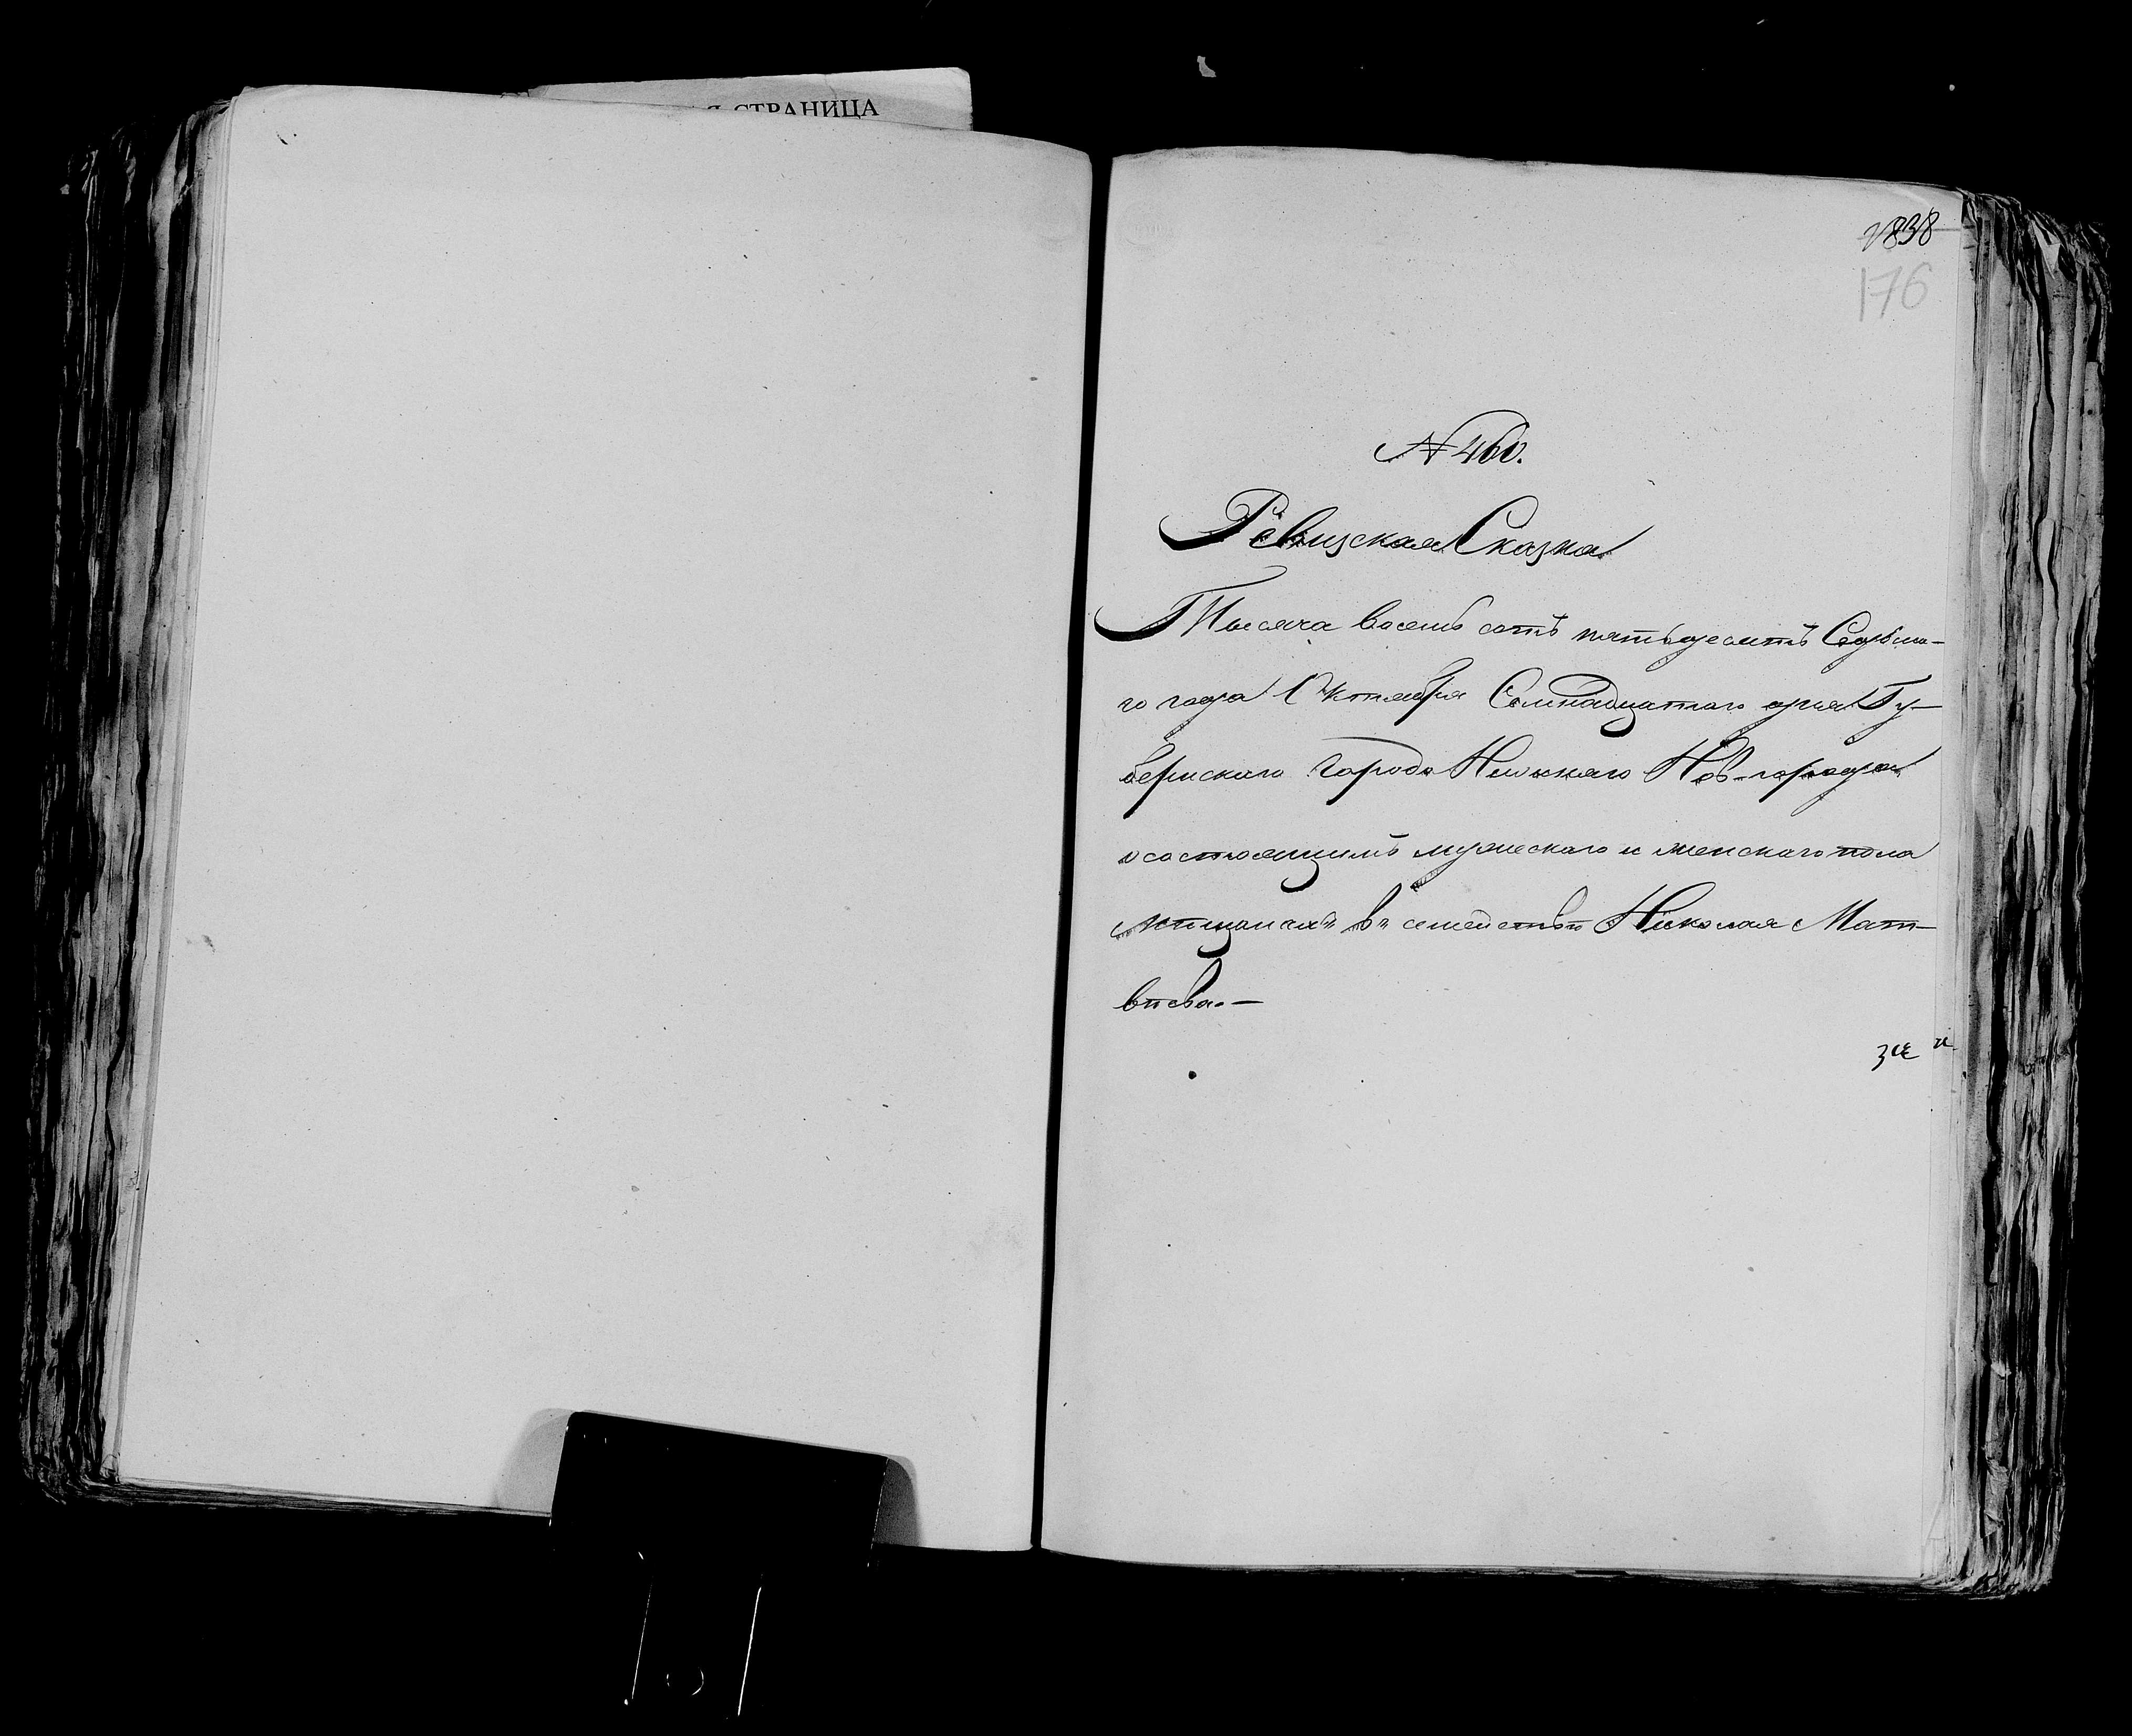 СТРАНИЦА
1838
176
N 460.
Ревизская Сказка
Тысяча восемь сотъ пятьдесятъ Седьма-
го года Октября Семнадцатаго дня Гу-
бернскаго города Нижняго Нов-города
о состоящихъ мужескаго и женскаго пола
мѣщанахъ въ семействѣ Николая Мат-
вѣева. —